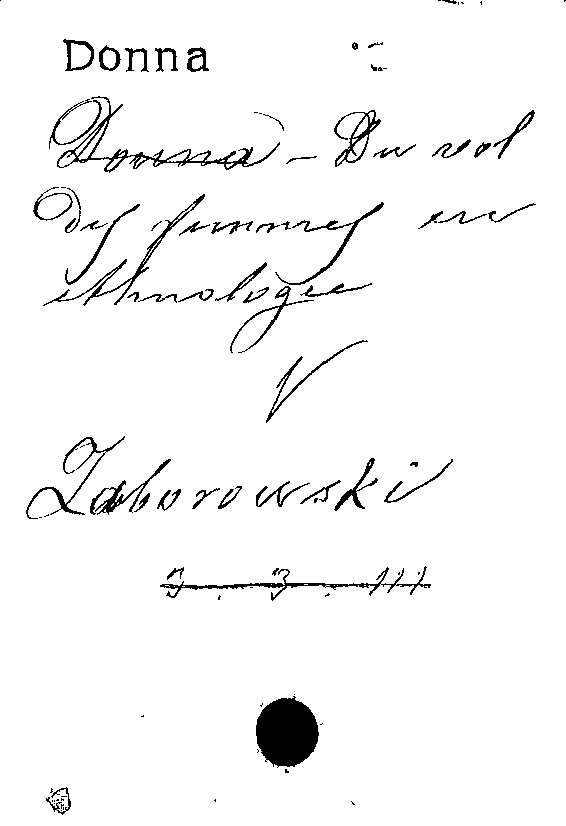 Donna
Donna - Du vol
des femmes en
ethnologie
V
Zaborowski
3. 3. 111